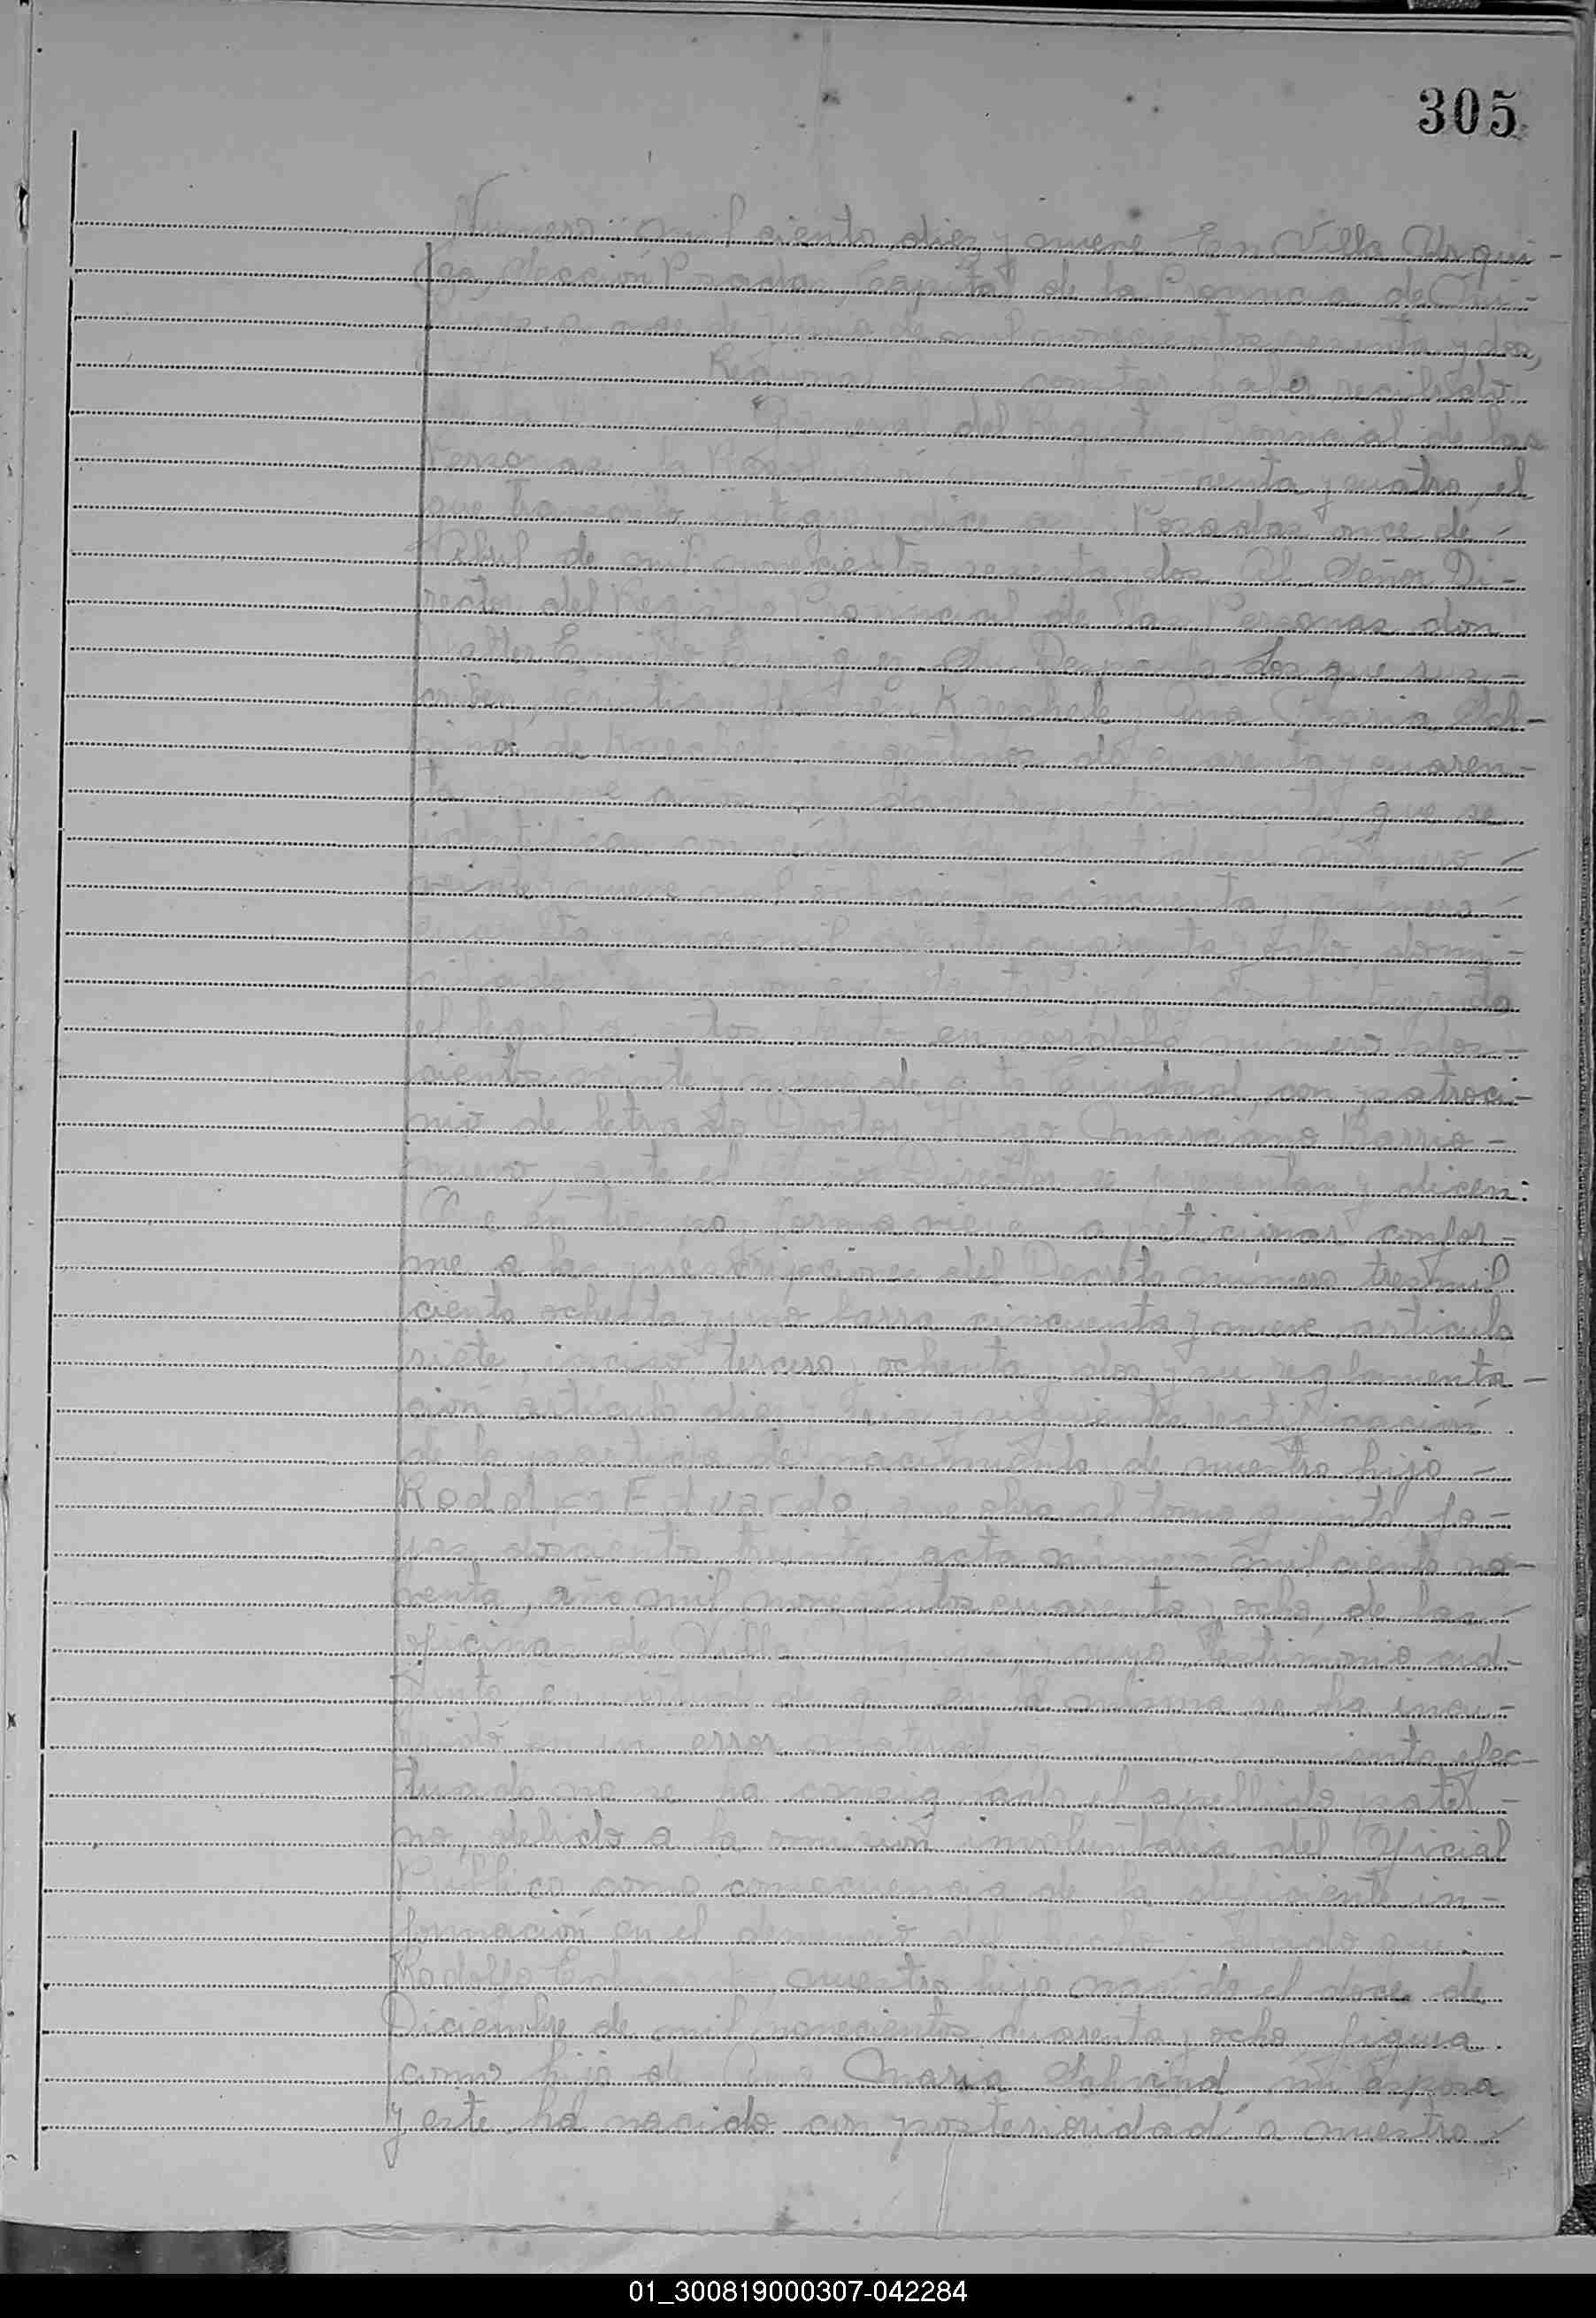 305
Número: mil ciento diez y nueve. En Villa Urqui-
za, Sección Posadas, Capital de la Provincia de Mi-
a once de junio de mil novecientos sesenta y dos,
Regional hace constar haber recibido
General del Registro Provincial de las
Personas, la Resolución renta y cuatro, el
que transcrito íntegro dice así: Posadas once de-
Abril de mil novecientos sesenta y dos. Al Señor Di-
rector del Registro Provincial de las Personas don
Walter Emilio Enriquez. Su Despacho. Los que sus-
criben, Cristian Kaechele y Ana Maria Sch-
de Kaechele, argentinos de cuarenta y cuaren-
ta y nueve años de edad respectivamente, que se
identifican con cédula de identidad número-
veinte y nueve mil ochocientos cincuenta y número-
mil ciento cuarenta y ocho domi-
ciliados en constituyendo
el legal a estos efectos en Córdoba número dos-
cientos veinte y nueve de esta Ciudad, con patroci-
nio de letrado Doctor Hugo Marciano Barrio-
nuevo, ante el Señor Director se presentan y dicen:
Que en tiempo y forma vienen a peticionar confor-
me a las prescripciones del Decreto número tres mil
ciento ochenta y uno barra cincuenta y nueve artículo
siete, inciso tercero, ochenta y dos y su reglamenta-
ción artículo diez y seis y siguientes rectificación
de la partida de nacimiento de nuestro hijo-
Rodolfo Eduardo, que obra al tomo quinto, fo-
jas doscientos treinta, acta número mil ciento no-
venta, año mil novecientos cuarenta y ocho, de las-
oficinas de Villa Urquiza, y cuyo testimonio ad-
junto en virtud de que en la misma se ha incu-
rrido en un error material y efec-
tuado no se ha consignado el apellido pater-
no, debido a la omisión involuntaria del Oficial
Público como consecuencia de la deficiente in-
formación en el denuncio del hecho; dado que:
Rodolfo Eduardo, nuestro hijo nacido el doce de
Diciembre de mil novecientos cuarenta y ocho, figura.
como hijo de Ana Maria Schvind mi esposa
y este ha nacido con posterioridad a nuestro-
01_300819000307-042284